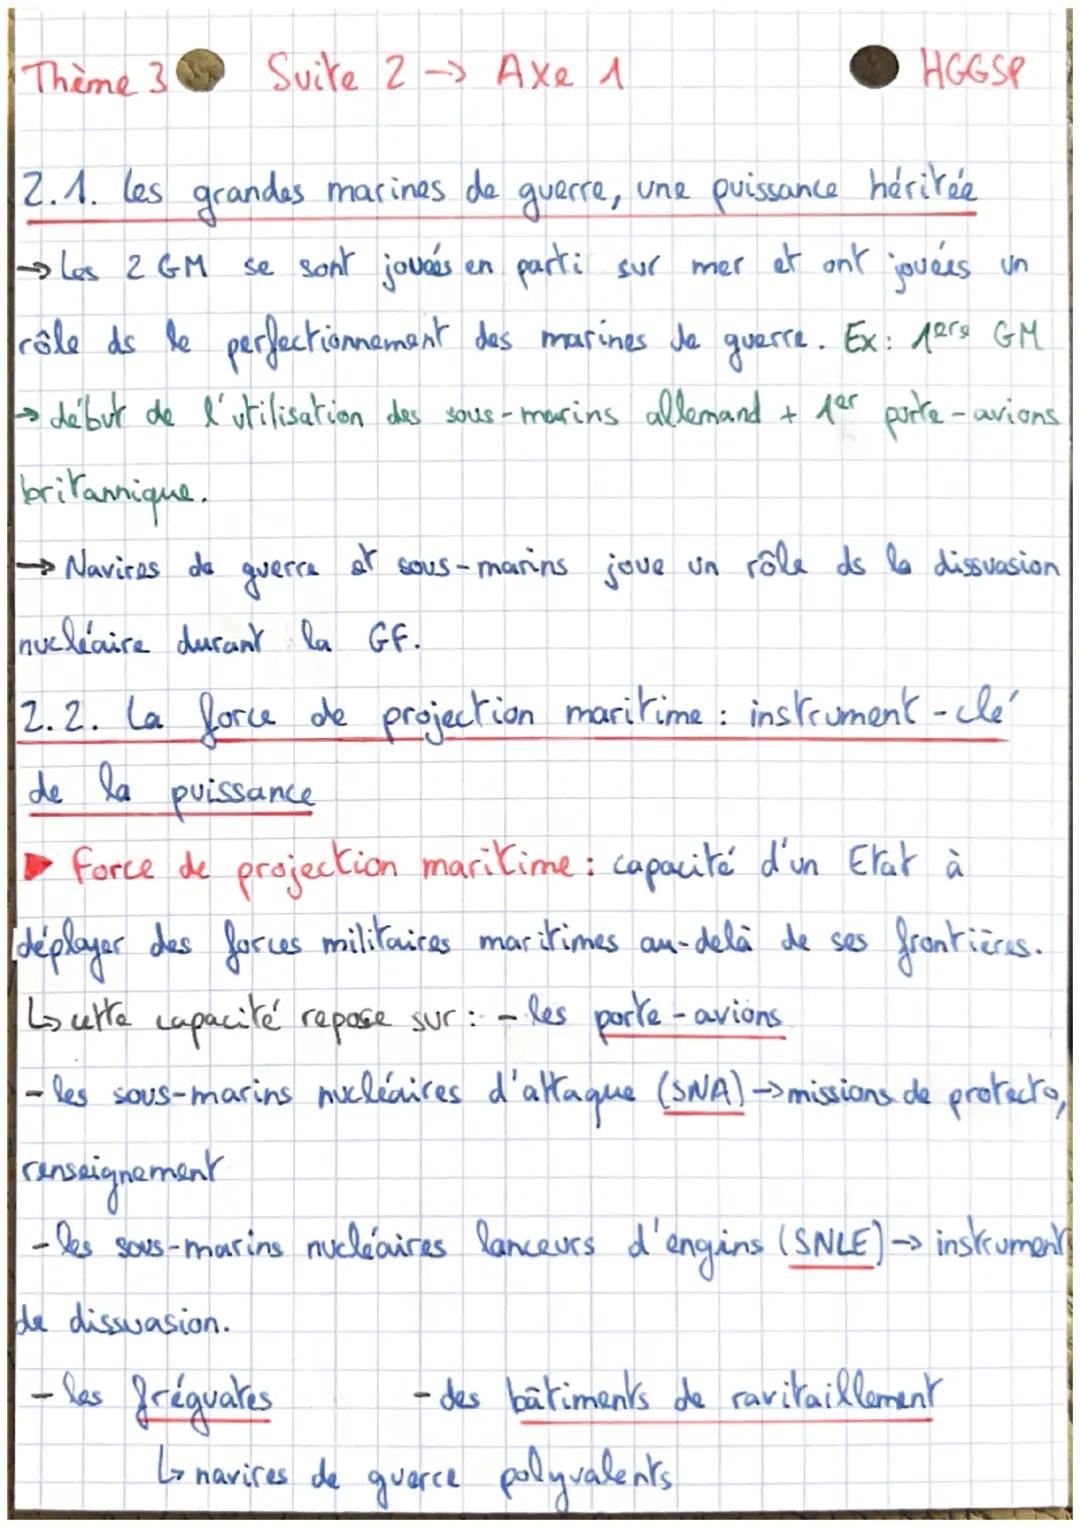 Thème 3 Suite 2 → Axe 1 HGGSP
2.1. Les grandes marines de guerre, une puissance héritée
→ Les 2 GM se sont jouées en parti sur mer et ont jouées un
rôle ds le perfectionnement des marines de guerre. Ex : 1ère GM
→ début de l'utilisation des sous-marins allemand + 1er porte-avions
britannique.
→ Navires de guerre et sous-marins joue un rôle ds la dissuasion
nucléaire durant la GF.
2.2. La force de projection maritime : instrument-clé
de la puissance
▶ Force de projection maritime : capacité d'un Etat à
déployer des forces militaires maritimes au-delà de ses frontières.
↳ cette capacité repose sur : - les porte-avions
- les sous-marins nucléaires d'attaque (SNA) → missions de protecto,
renseignement
- les sous-marins nucléaires lanceurs d'engins (SNLE) → instrument
de dissuasion.
- les fréguates - des bâtiments de ravitaillement
↳ navires de guerre polyvalents